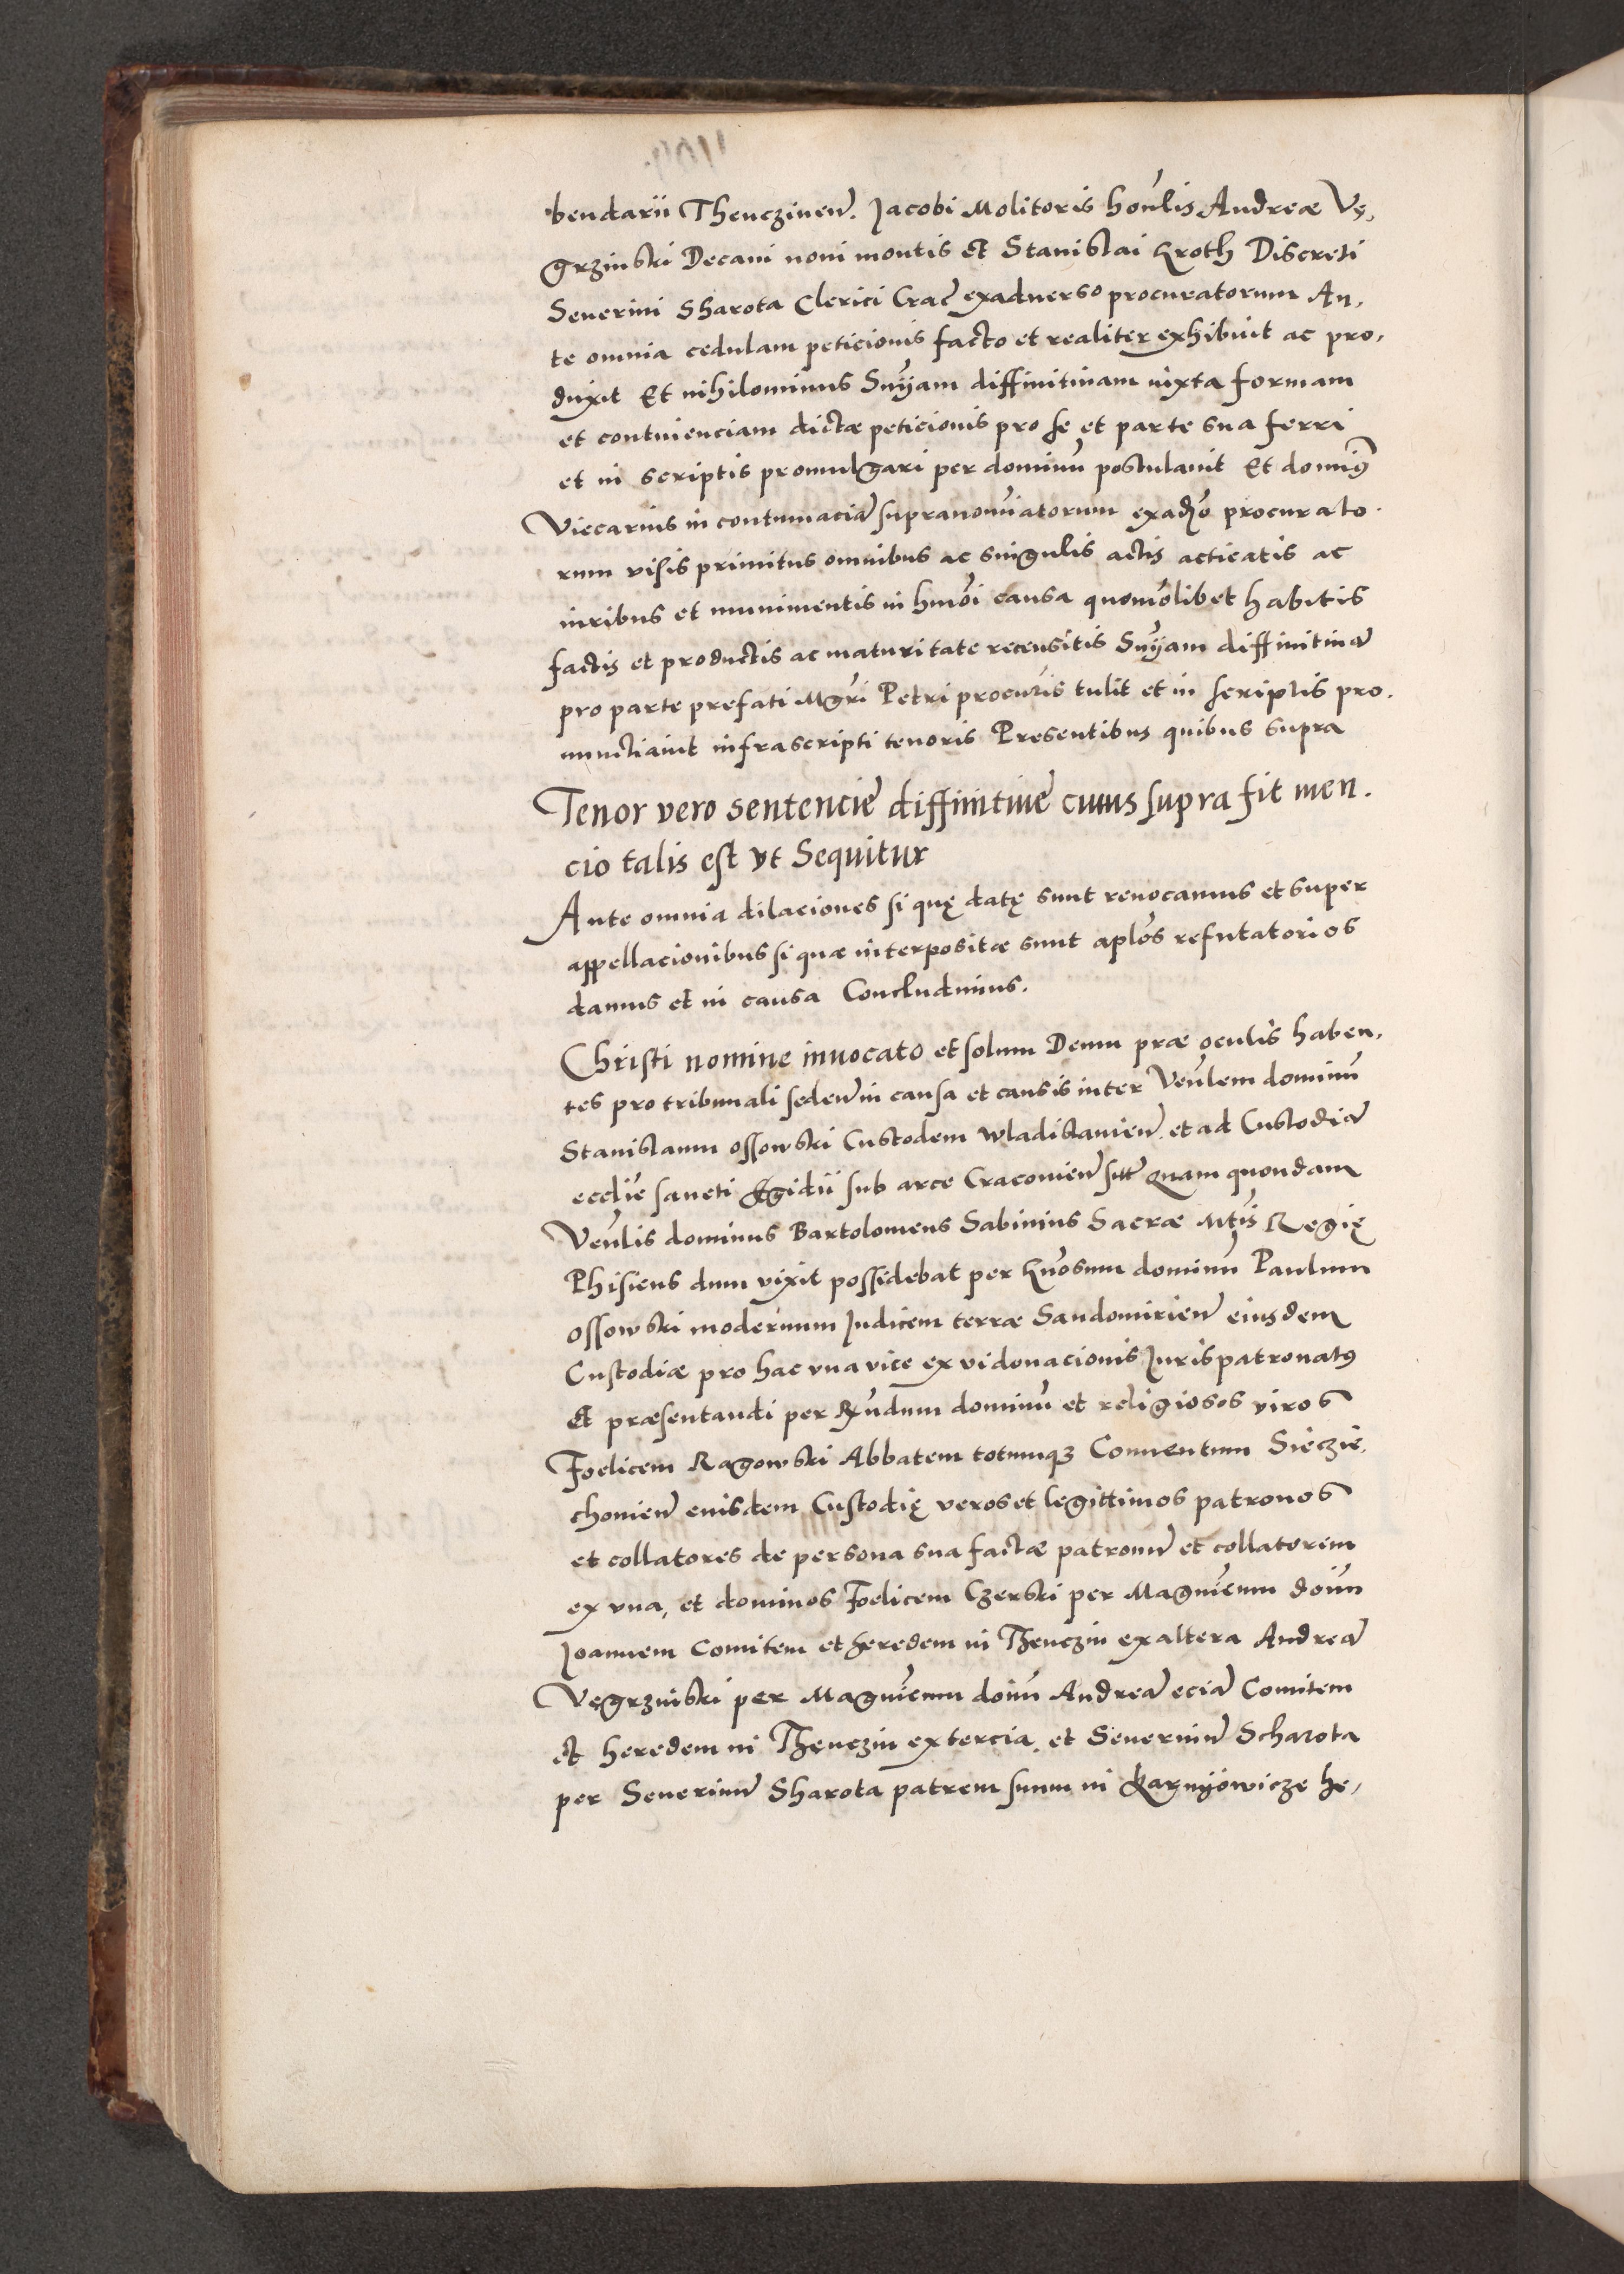 bendarii Thenczineñ. Jacobi Molitoris honĺis Andreæ Vę,
grzinski Decani noui montis et Stanislai Kroth Discreti
Seuerini Sharota Clerici Crac̃ exaduerso procuratorum An,
te omnia cedulam peticionis facto et realiter exhibuit ac pro,
duxit Et nihilominus Sn̄yam diffinitiuam iuxta formam
et continenciam dictæ peticionis pro se et parte sua ferri
et in scriptis promulgari per dominū postulauit Et dominꝰ
Viccarius in contumaciā supranoīatorum exad̃so procurato.
rum visis primitus omnibus ac singulis actis acticatis ac
iuribus et munimentis in hm̄oi causa quomōlibet habitis
factis et productis ac maturitate recensitis Sn̄yam diffinitiuā
pro parte prefati Mgr̄i Petri procur̄is tulit et in scriptis pro.
nunctiauit infrascripti tenoris Presentibus quibus supra
Tenor vero sentencie diffinitiue cuius supra fit men.
cio talis est vt Sequitur
Ante omnia dilaciones si quę datę sunt reuocamus et super
appellacionibus si quæ interpositæ sunt apl̄os refutatorios
damus et in causa Concludimus.
Christi nomine inuocato et solum Deum præ oculis haben,
tes pro tribunali sedeñ in causa et causis inter Ven̄lem dominū
Stanislaum Ossowski Custodem Wladislauieñ. et ad Custodiā
eccl̄ie sancti Egidii sub arce Cracouieñ sitā Quam quondam
Ven̄lis dominus Bartolomeus Sabinius Sacræ Mt̄is Regię
Phisicus dum vixit possidebat per Gn̄osum dominū Paulum
Ossowski modernum Judicem terræ Sandomirieñ eiusdem
Custodiæ pro hac vna vice ex vi donacionis Juris patronatꝰ
Et præsentandi per Rn̄dum dominū et religiosos viros
Foelicem Ragowski Abbatem totumqꝫ Conuentum Sieczie,
chouieñ eiusdem Custodię veros et legittimos patronos
et collatores de persona sua factæ patronū et collatorem
ex vna, et dominos Foelicem Czerski per Magnīcum doīum
Joannem Comitem et heredem in Thenczin ex altera Andreā
Vęgrzinski per Magnīcum doīum Andreā eciā Comitem
et heredem in Thęnczin ex tercia. et Seuerinū Scharota
per Seuerinū Sharota patrem suum in Karnyowicze he,